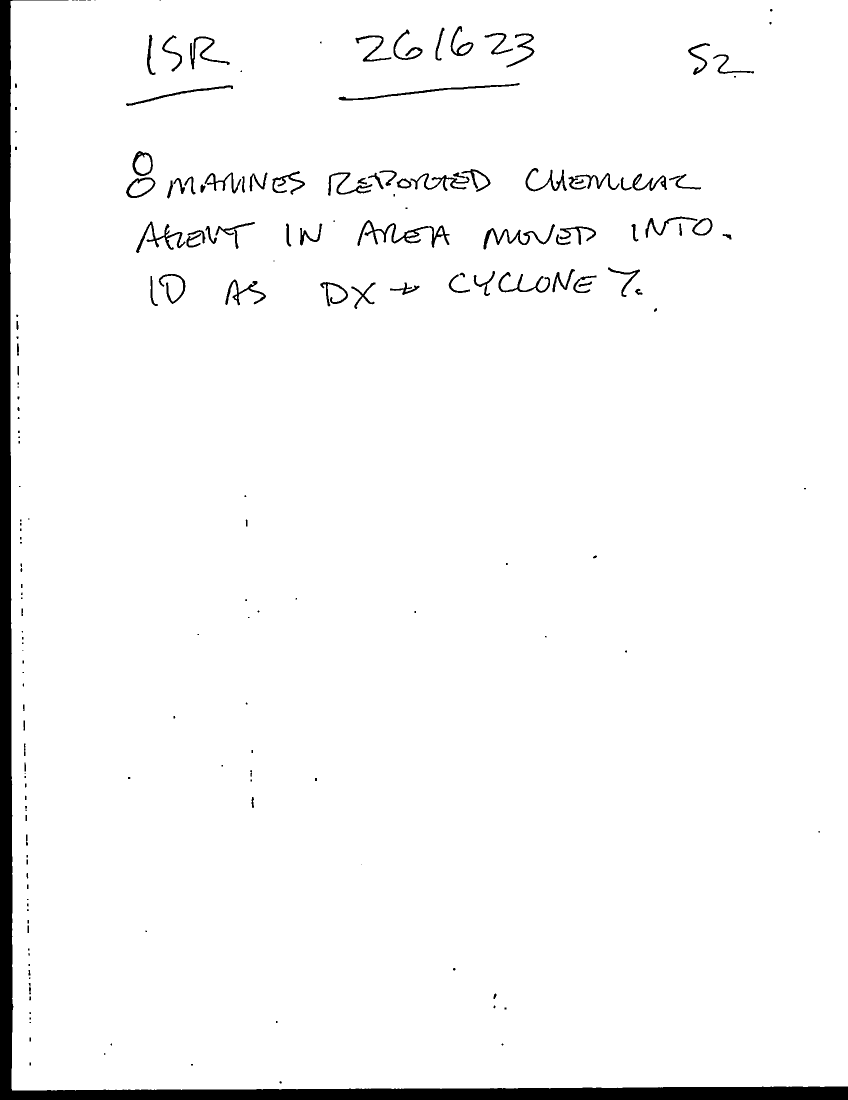 ISR 261623 S2
8 MARINES REPORTED CHEMICAL
AGENT IN AREA MOVED INTO.
ID AS DX + CYCLONE 7.